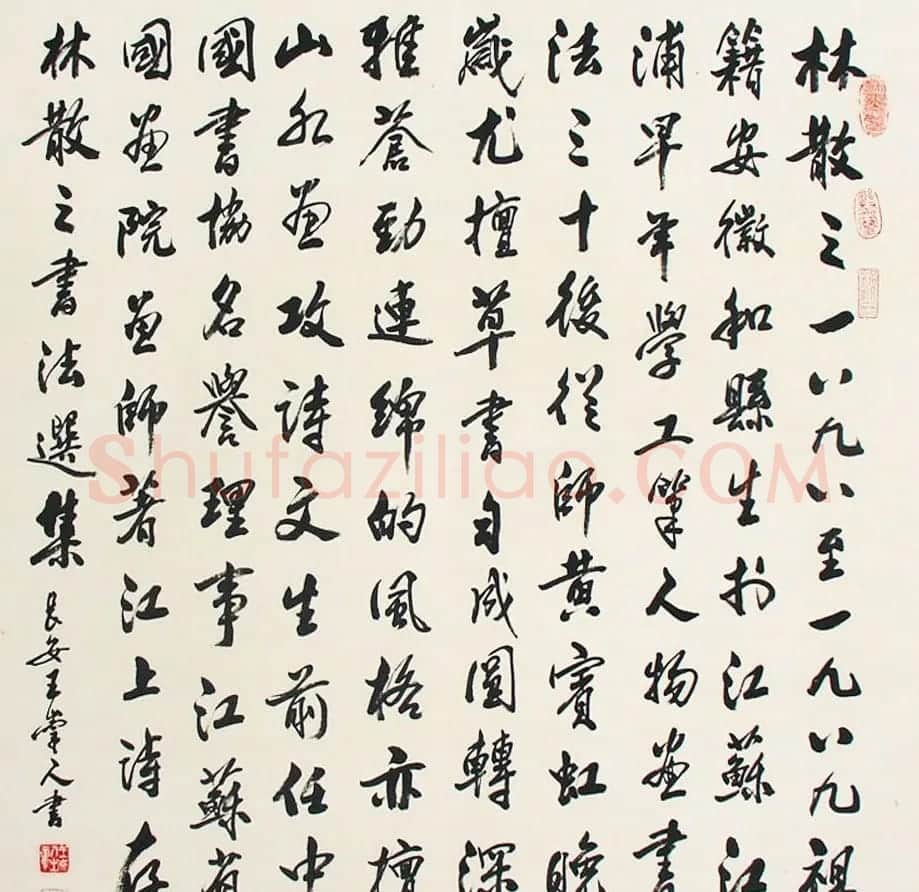 林散之一八九八至一九八九祖
籍安徽和縣生於江蘇江
浦早年學工筆人物畫書
法三十後從師黃賓虹晚
歲尤擅草書自成圓轉深
雅蒼勁連綿的風格亦擅
山水畫攻詩文生前任中
國書協名譽理事江蘇省
國畫院畫師著江上詩存
林散之書法選集
長安王崇人書
Shufaziliao.COM